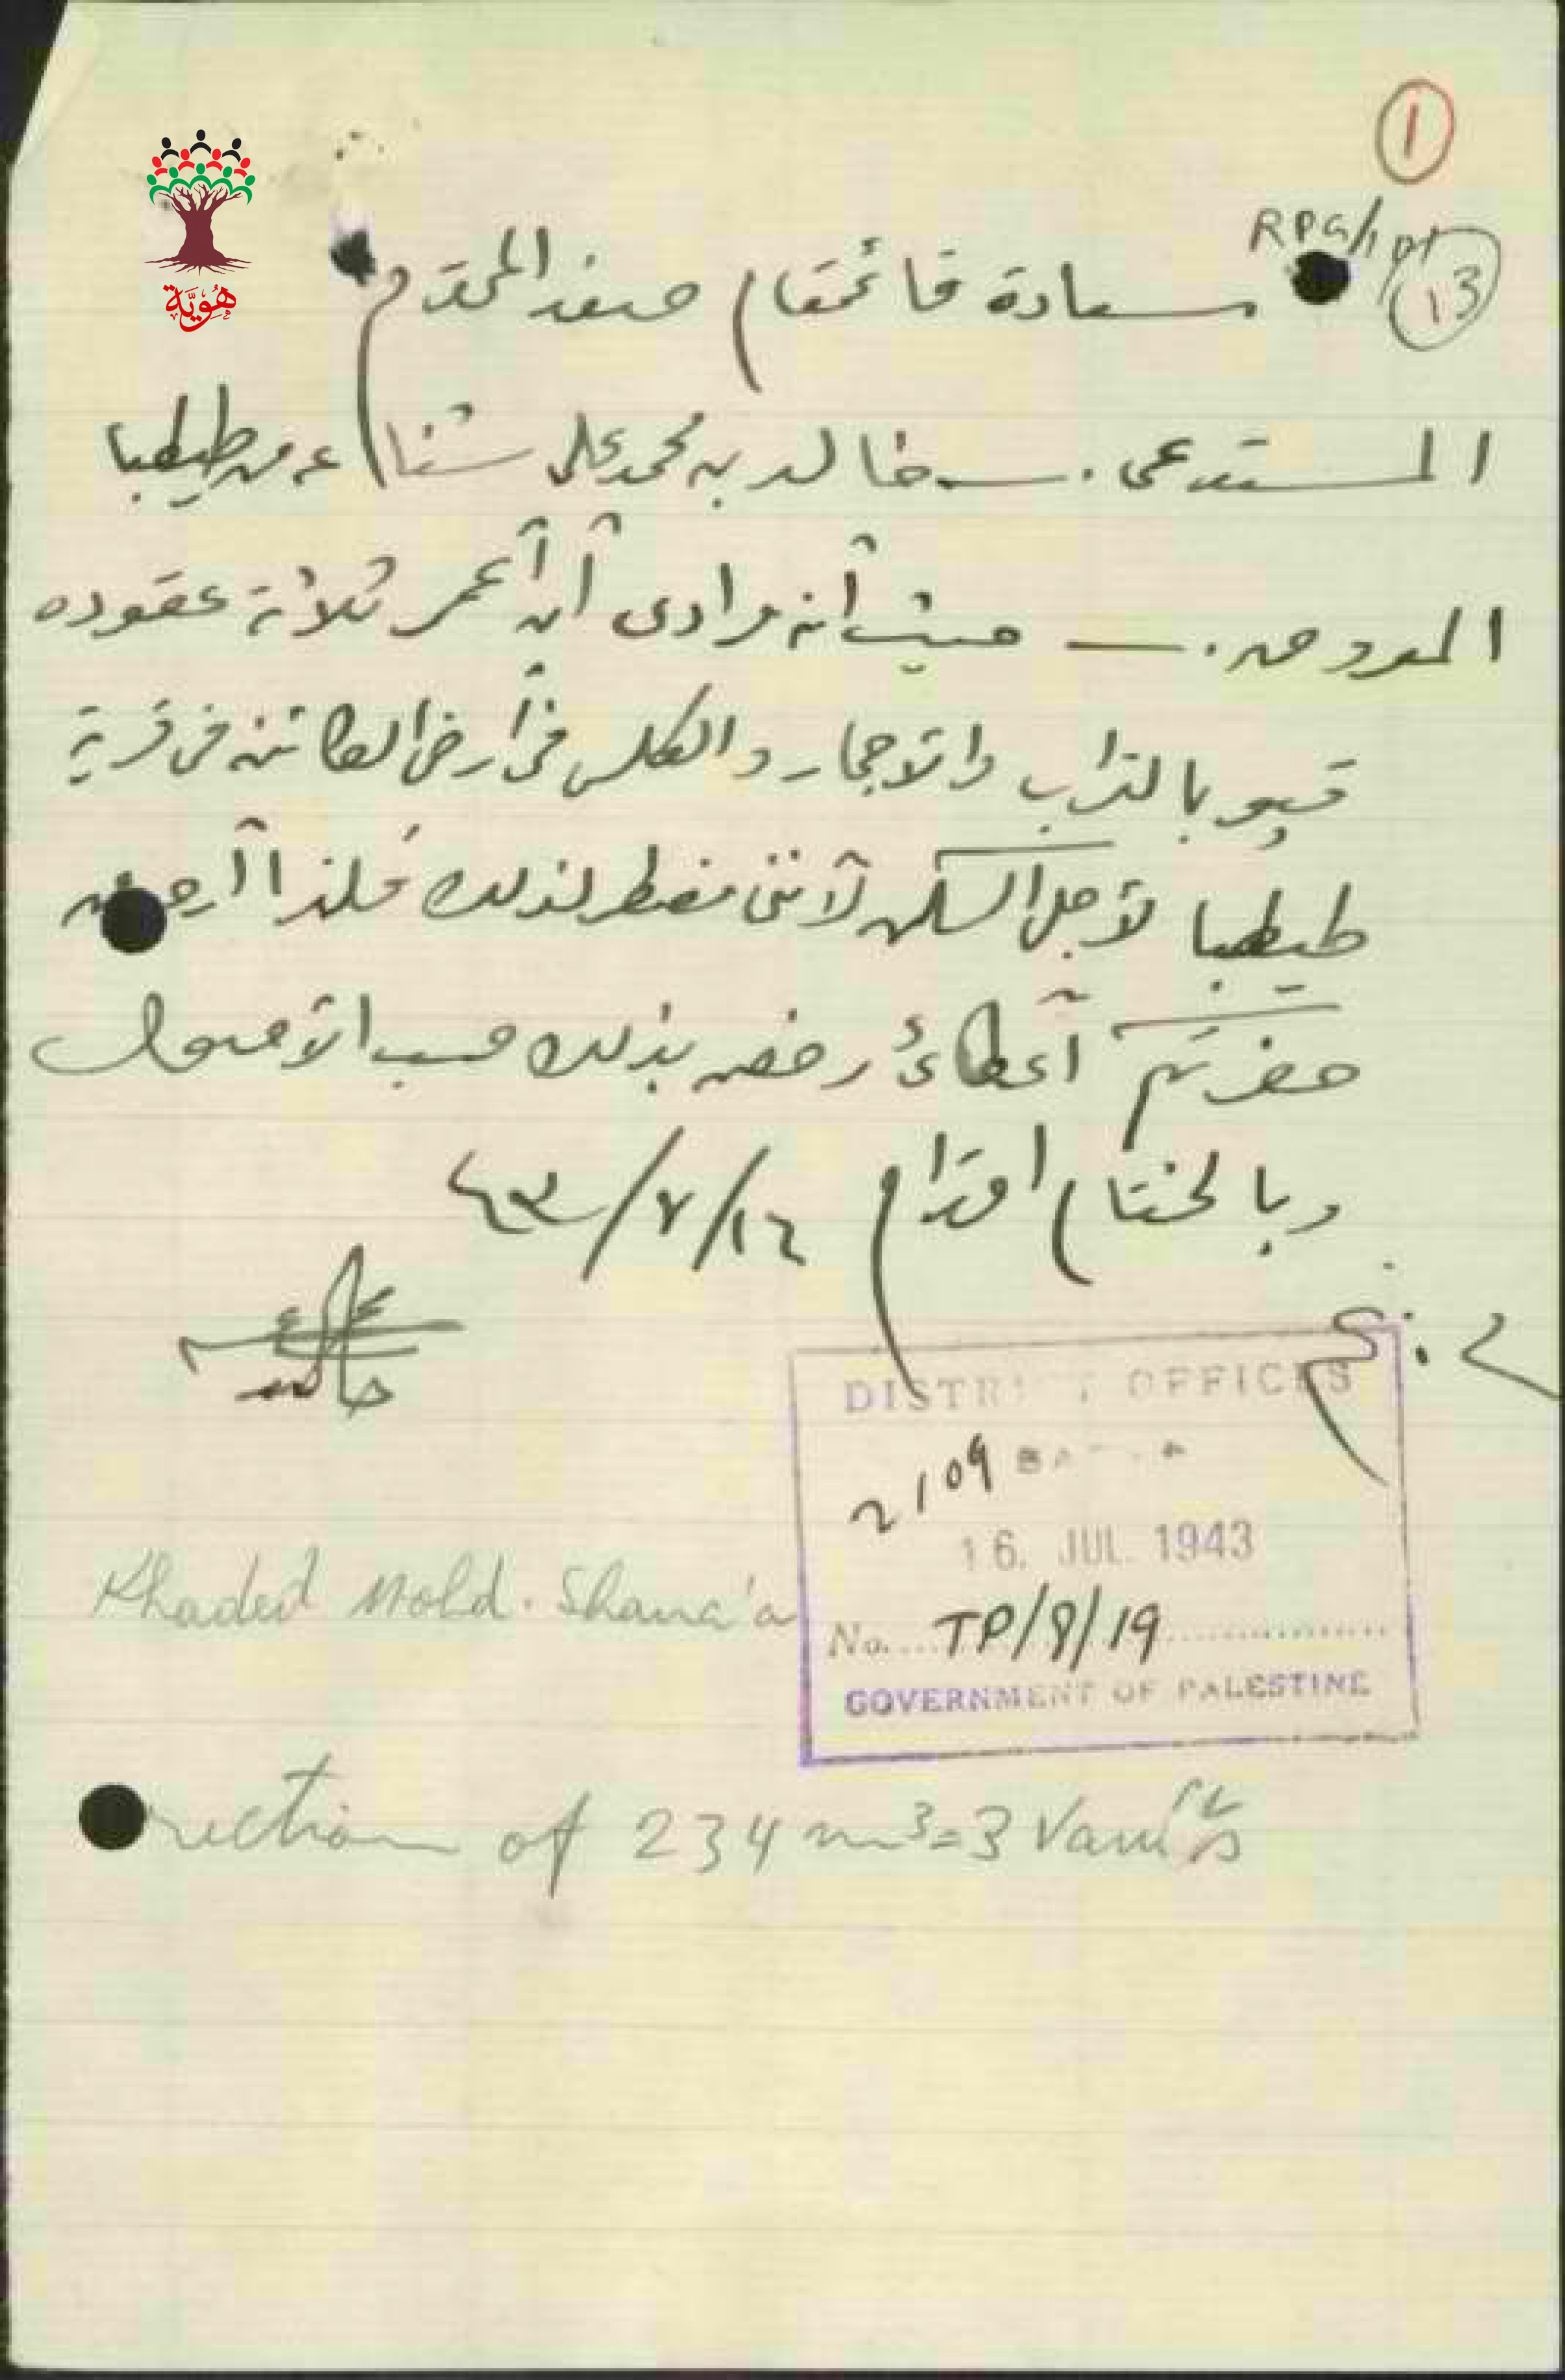 1
RPG/1
13
هُوِيَّة
سعادة قائمقام صفد المحترم
المستدعى . خالد بن محمد علي شناعه من طيطبا
المعروض . حيث أنه مرادى أن أعمر ثلاثة عقوده
قبو بالتراب والأحجار والكلس في أرضي الكائنه في قرية
طيطبا لأجل السكن لأنني مضطر لذلك فلذا أرجو من
حضرتكم أعطائي رخصه بذلك حسب الأصول
وبالختام احترام ١٤/٧/٤٣
خالد محمد علي
DISTRICT OFFICES
2109 SAFAD
16. JUL. 1943
No. TP/8/19
GOVERNMENT OF PALESTINE
Khaded Mohd. Shana'a
rection of 234 m³=3 Vaults